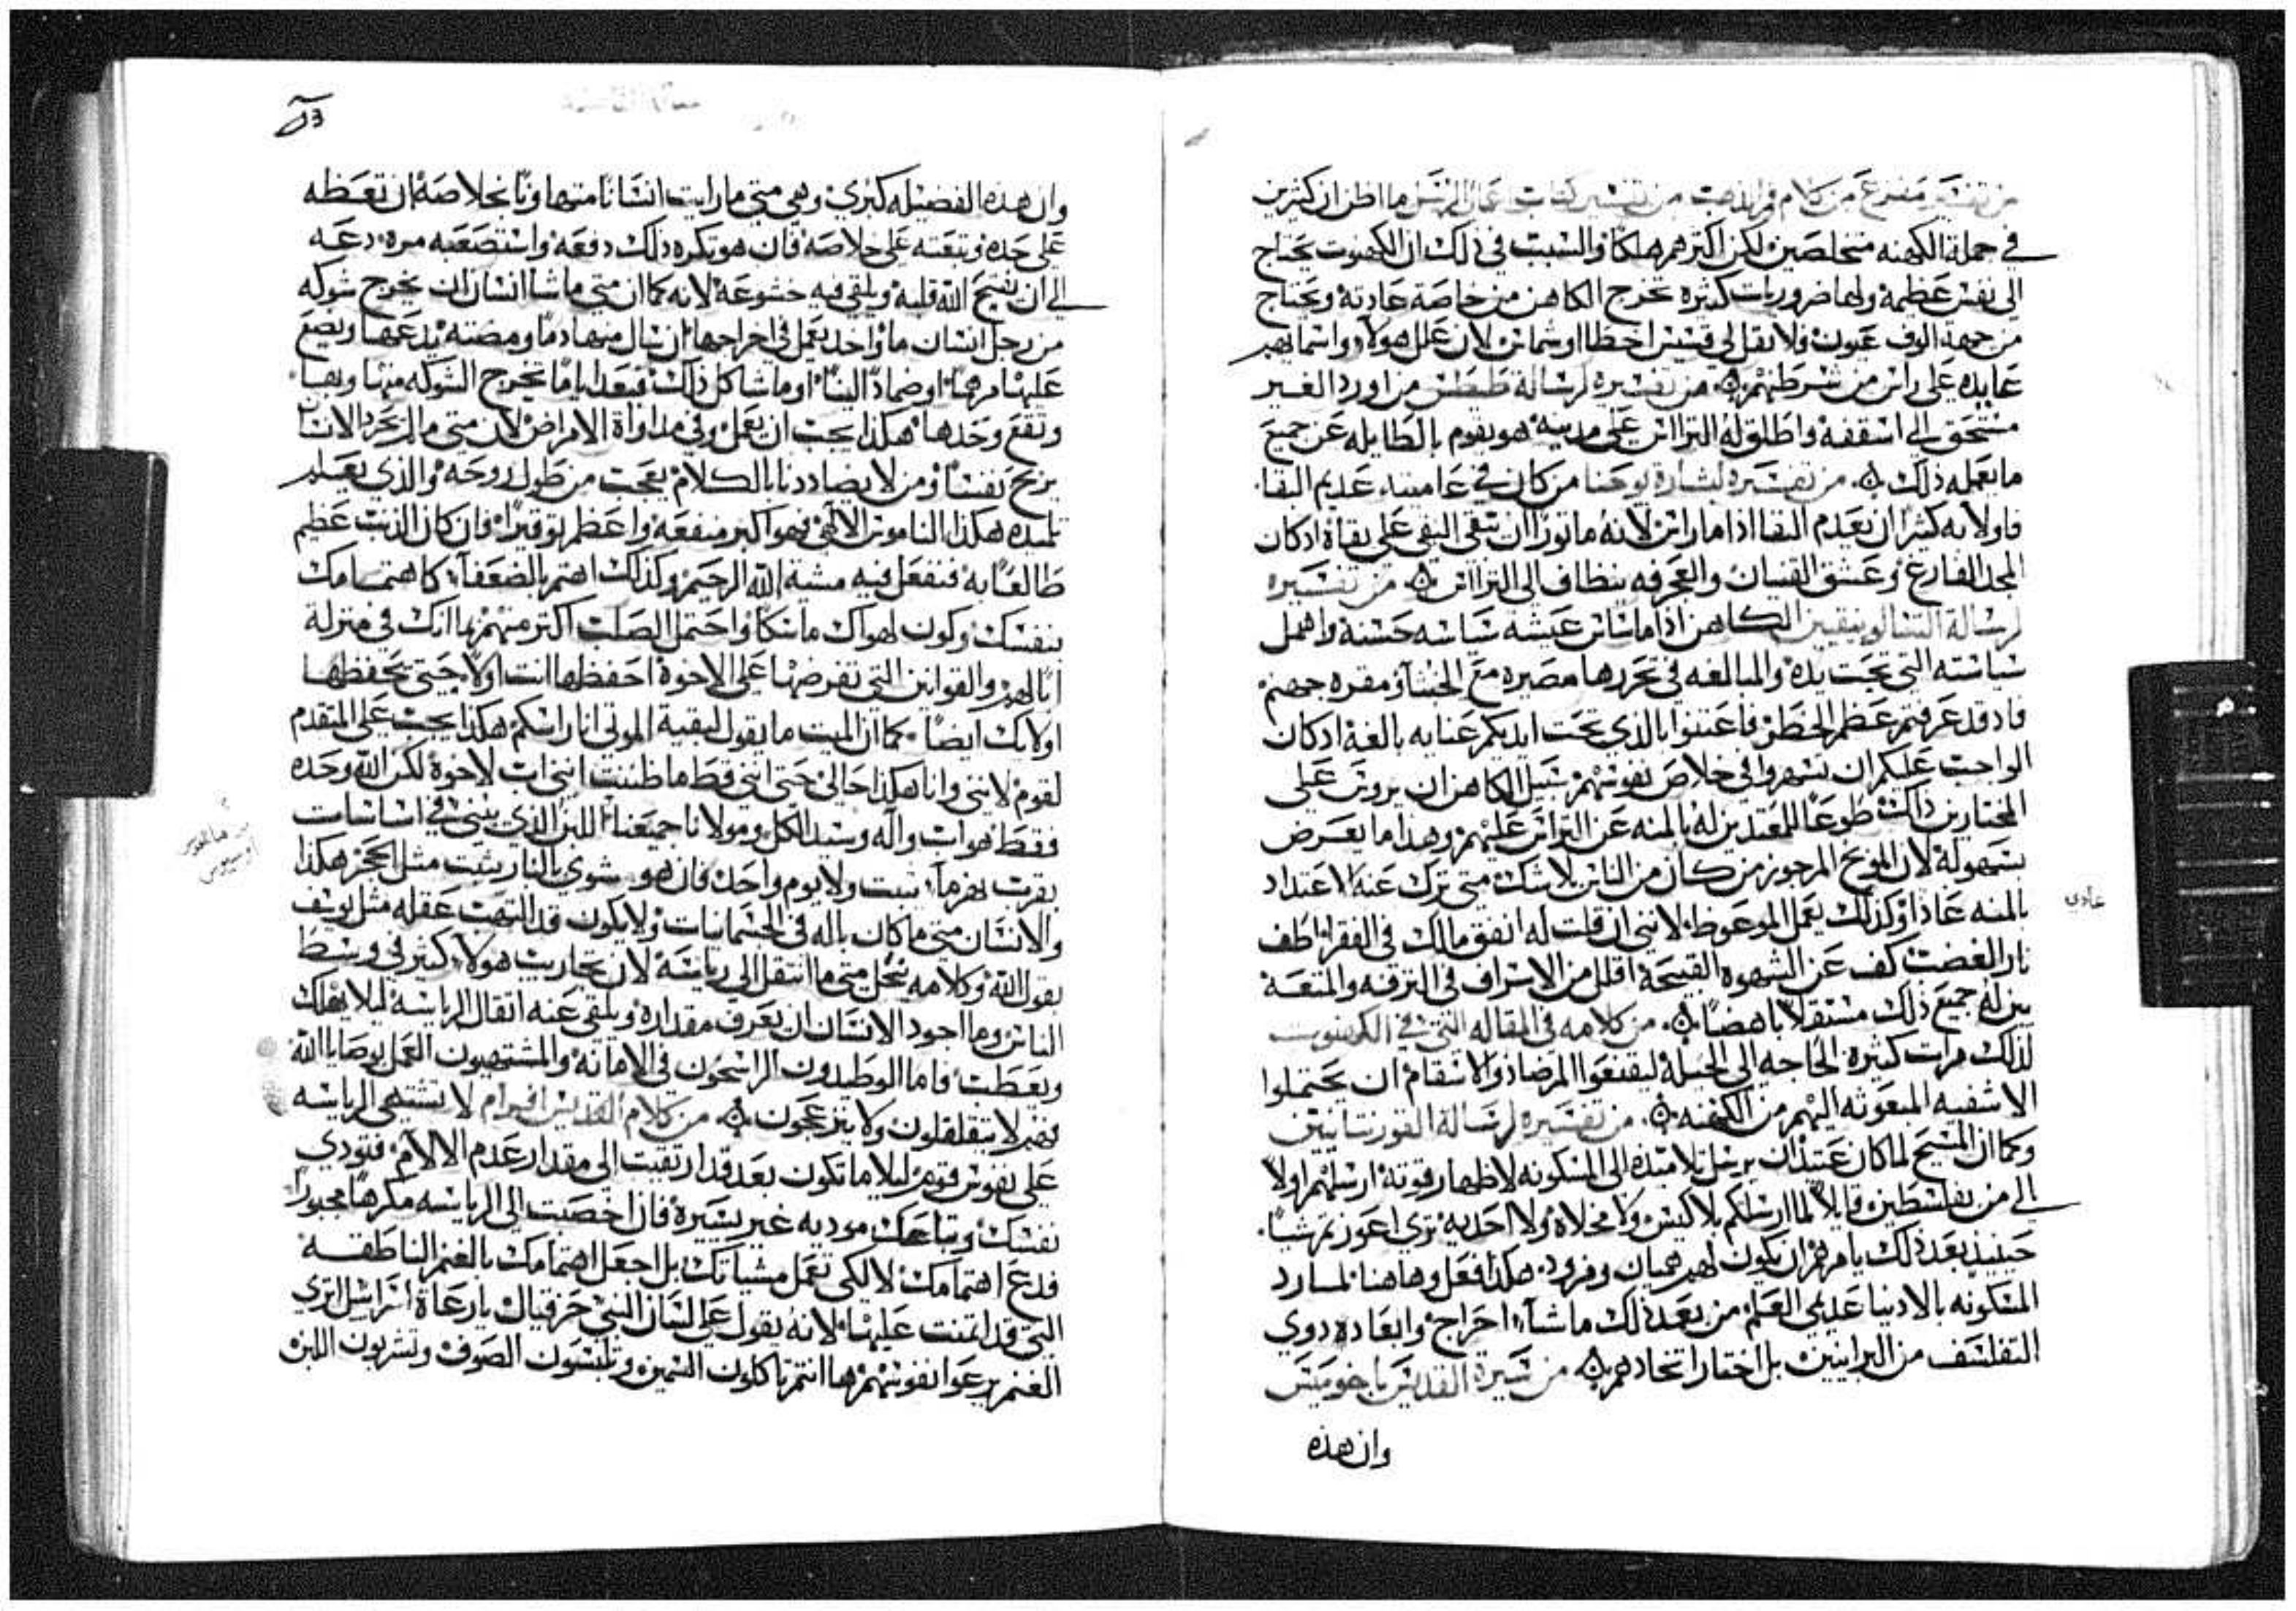 من تفسير مفرع من كلام فم الذهب من تفسير كتاب اعمال الرسل ما اظن ان كثرين
في جملة الكهنه متخلصين لكن اكترهم هلكا والسبب في ذلك ان الكهنوت يحتاج
الى نفس عظيمة ولها ضروريات كثيره تخرج الكاهن من خاصة عادته ويحتاج
من جهة الوف عيون ولا يقل لي قسيس اخطا او شماس لان علل هولاء واسبابهم
عايده على راس من شرطنهم من تفسيره لرسالة طيطس من اورد الغير
مستحق الى اسقفيه واطلق له التراس على مدينه هو يقوم بالطايله عن جميع
ما يعمله ذلك من تفسيره لبشارة يوحنا من كان في عاميته عديم النقا
فاولا به كثيرا ان يعدم النقا اذا ما راس لانه ماثورا ان تبقى النقي على نقاه اذ كان
المجد الفارغ وعشق القنيان والعجرفه ينظاف الى التراس من تفسيره
لرسالة التسالونيقيين الكاهن اذا ما ساس عيشه سياسه حسنة واهمل
سياسته التي تحت يده والمبالغه في تحررها مصيره مع الخسا ومقره جهنم
فاذ قد عرفتم عظم الخطر فاعتنوا بالذي تحت ايديكم عنايه بالغة اذ كان
الواجب عليكم ان تسهروا في خلاص نفوسهم سبيل الكاهن ان يروس على
المختارين ذلك طوعا المعتدين له بالمنه عن التراس عليهم وهذا ما يعرض
بسهولة لان الموبخ المرجوز من كان من الناس بلا شك متى ترك عنه الاعتداد
بالمنه عاذا وكذلك يعمل الموعوظ لانني ان قلت له انفق مالك في الفقرا اطف
نار الغضب كف عن الشهوه القبيحة اقلل من الاسراف في الترفه والمتعة
ين له جميع ذلك مستقلا باهضا من كلامه في المقاله التي في الكهنوت
لذلك مرات كثيره الحاجه الى الحيلة ليقنعوا المرضا ذوا الاسقام ان يحتملوا
الاشفيه المبعوثه اليهم من الكهنه من تفسيره لرسالة القورنتانيين
وكما ان المسيح لما كان عتيدا ان يرسل تلاميذه الى المسكونه لاظهار قوته ارسلهم اولا
الى من بفلسطين قايلا لما ارسلكم بلا كيس ولا مخلاه ولا احديه ترى اعوزتم شيا
حينيذ بعد ذلك يامرهم ان يكون لهم هميان ومزود هكذا فعل وها هنا لما رد
المسكونه بالادنيا عديمي العلم من بعد ذلك ما شاء احراج وابعاده دوي
التفلسف من البرانيين بل اختار اتحادهم من سيرة القديس باخوميس
وان هذه
عادي
وان هذه الفضيله كبرى وهي متى ما رايت انسانا متهاونا بخلاصه ان تعظه
على حده وتبعته على خلاصه فان هو تكره ذلك دفعه واستصعبه مره دعه
الى ان يفتح الله قلبه ويلقي فيه خشوعه لانه كما ان متى ما شا انسان ان يخرج شوكه
من رجل انسان ما واخذ يعمل في اخراجها ان سال منها دما ومضته يدعها ويضع
عليها مرهما او ضمادا لينا او ما شاكل ذلك فبعد اياما تخرج الشوكه منها وبها
وتقع وحدها هكذا يجب ان يعمل وفي مداواة الامراض لان متى ما لم يحرد الانسان
يربح نفسا ومن لا يضاددنا بالكلام يعجب من طول روحه والذي يعلم
تلميذه هكذا الناموس الالهي فهو اكبر منفعه واعظم توقيرا وان كان الذنب عظيم
طالعا به فتفعل فيه مشية الله الرحيم وكذلك اهتم بالضعفا كاهتمامك
بنفسك وكون لهواك ماسكا واحتمل الصلب اكتر منهم بما انك في منزلة
ابا لهم والقوانين التي تفرضها على الاخوة احفظها انت اولا حتى يحفظها
اولايك ايضا كما ان الميت ما يقول لبقية الموتى انا راسكم هكذا يجب على المتقدم
لقوم لانني وانا هكذا حالي حتى انني قط ما ظننت انني اب لاخوة لكن الله وحده
فقط هو اب واله وسيد الكل ومولانا جميعنا اللبن الذي ينبني في اساسات
بقرب نهر ما يثبت ولا يوم واحد فان هو شوي بالنار يثبت مثل الحجر هكذا
والانسان متى ما كان باله في الجسمانيات ولا يكون قد التهب عقله مثل يوسف
بقول الله وكلامه ينحل متى ما انتقل الى رياسة لان تجاريب هولا كثير في وسط
الناس وما اجود الانسان ان يعرف مقداره ويلقي عنه اثقال الرياسة ليلا يهلك
ويعطب فاما الوطيدون الراسخون في الامانه والمشتهيون العمل بوصايا الله
فهم لا يتقلقلون ولا ينزعجون من كلام القديس افرام لا تشتهي الرياسه
على نفوس قوم ليلا ما تكون بعد قد ارتقيت الى مقدار عدم الالام فتودي
نفسك وتباعك موديه غير يسيرة فان اخصبت الى الرياسه مكرها مجبورا
فدع اهتمامك لا لكي تعمل مشياتك بل اجعل اهتمامك بالغنم الناطقة
التي قد ايتمنت عليها لانه يقول على لسان النبي حزقيال يا رعاة اسراسل اترى
الغنم يرعوا نفوسهم ها انتم تاكلون السمين وتلبسون الصوف وتشربون اللبن